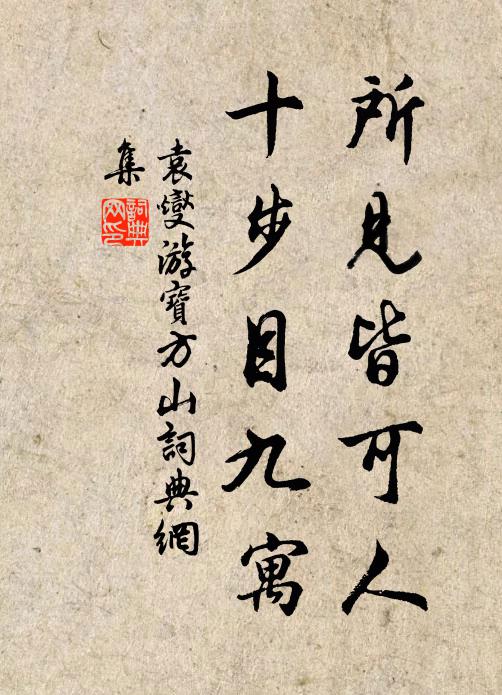 所見皆可人
十步目九寓
袁燮游寶方山詞典網
集
詞典
网印